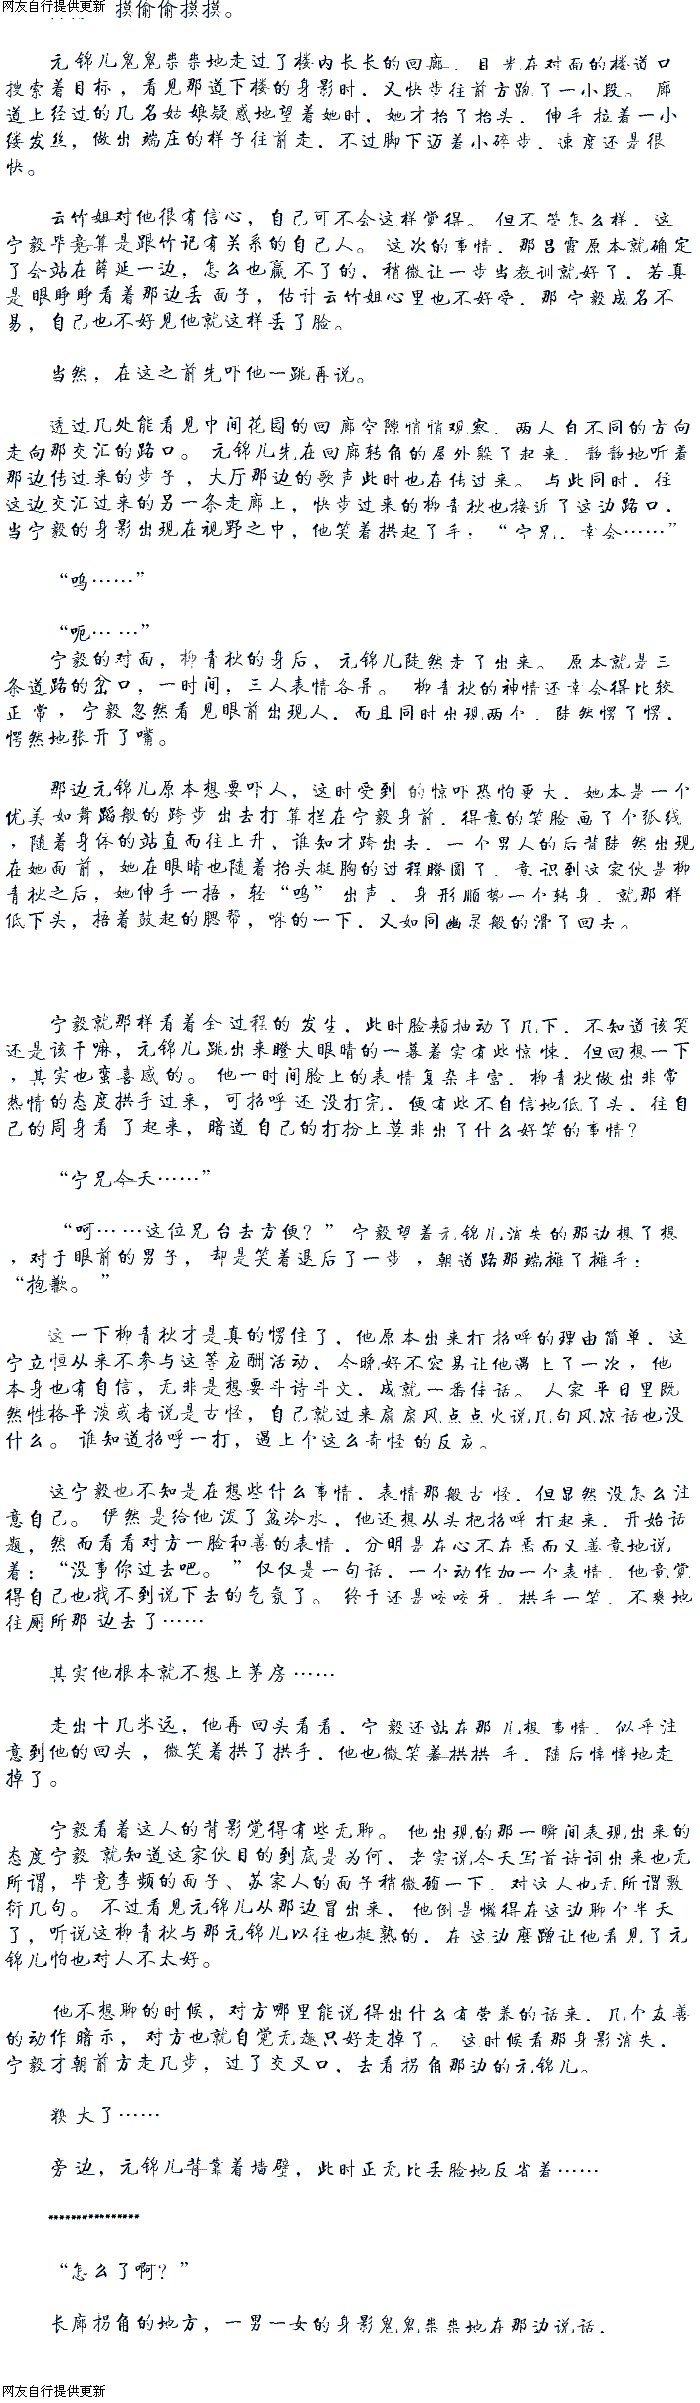 网友自行提供更新
摸偷偷摸摸。
元锦儿鬼鬼祟祟地走过了楼内长长的回廊，目光在对面的楼道口
搜索着目标，看见那道下楼的身影时，又快步往前方跑了一小段。 廊
道上经过的几名姑娘疑惑地望着她时，她才抬了抬头，伸手拉着一小
缕发丝，做出端庄的样子往前走，不过脚下迈着小碎步，速度还是很
快。
云竹姐对他很有信心，自己可不会这样觉得。 但不管怎么样，这
宁毅毕竟算是跟竹记有关系的自己人。 这次的事情，那吕霞原本就确定
了会站在薛延一边，怎么也赢不了的，稍微让一步当教训就好了，若真
是眼睁睁看着那边丢面子，估计云竹姐心里也不好受，那宁毅成名不
易，自己也不好见他就这样丢了脸。
当然，在这之前先吓他一跳再说。
透过几处能看见中间花园的回廊空隙悄悄观察，两人自不同的方向
走向那交汇的路口。 元锦儿先在回廊转角的屋外躲了起来，静静地听着
那边传过来的步子，大厅那边的歌声此时也在传过来。 与此同时，往
这边交汇过来的另一条走廊上，快步过来的柳青秋也接近了这边路口，
当宁毅的身影出现在视野之中，他笑着拱起了手：“宁兄，幸会……”
“呜……”
“呃……”
宁毅的对面，柳青秋的身后，元锦儿陡然走了出来。 原本就是三
条道路的岔口，一时间，三人表情各异。 柳青秋的神情还幸会得比较
正常，宁毅忽然看见眼前出现人，而且同时出现两个，陡然愣了愣，
愕然地张开了嘴。
那边元锦儿原本想要吓人，这时受到的惊吓恐怕更大，她本是一个
优美如舞蹈般的跨步出去打算拦在宁毅身前，得意的笑脸画了个弧线
，随着身体的站直而往上升，谁知才跨出去，一个男人的后背陡然出现
在她面前，她在眼睛也随着抬头挺胸的过程瞪圆了，意识到这家伙是柳
青秋之后，她伸手一捂，轻“呜”出声，身形顺势一个转身，就那样
低下头，捂着鼓起的腮帮，咻的一下，又如同幽灵般的滑了回去。
宁毅就那样看着全过程的发生，此时脸颊抽动了几下，不知道该笑
还是该干嘛，元锦儿跳出来瞪大眼睛的一幕着实有些惊悚，但回想一下
，其实也蛮喜感的。 他一时间脸上的表情复杂丰富，柳青秋做出非常
热情的态度拱手过来，可招呼还没打完，便有些不自信地低了头，往自
己的周身看了起来，暗道自己的打扮上莫非出了什么好笑的事情？
“宁兄今天……”
“呵……这位兄台去方便？”宁毅望着元锦儿消失的那边想了想
，对于眼前的男子，却是笑着退后了一步，朝道路那端摊了摊手：
“抱歉。”
这一下柳青秋才是真的愣住了，他原本出来打招呼的理由简单，这
宁立恒从来不参与这等应酬活动，今晚好不容易让他遇上了一次，他
本身也有自信，无非是想要斗诗斗文，成就一番佳话。 人家平日里既
然性格平淡或者说是古怪，自己就过来扇扇风点点火说几句风凉话也没
什么。 谁知道招呼一打，遇上个这么奇怪的反应。
这宁毅也不知是在想些什么事情，表情那般古怪，但显然没怎么注
意自己。 俨然是给他泼了盆冷水，他还想从头把招呼打起来，开始话
题，然而看看对方一脸和善的表情，分明是在心不在焉而又善意地说
着：“没事你过去吧。”仅仅是一句话，一个动作加一个表情，他竟觉
得自己也找不到说下去的气氛了。 终于还是咬咬牙，拱手一笑，不爽地
往厕所那边去了……
其实他根本就不想上茅房……
走出十几米远，他再回头看看，宁毅还站在那儿想事情，似乎注
意到他的回头，微笑着拱了拱手，他也微笑着拱拱手，随后悻悻地走
掉了。
宁毅看着这人的背影觉得有些无聊。 他出现的那一瞬间表现出来的
态度宁毅就知道这家伙目的到底是为何，老实说今天写首诗词出来也无
所谓，毕竟李频的面子、苏家人的面子稍微顾一下，对这人也无所谓敷
衍几句。 不过看见元锦儿从那边冒出来，他倒是懒得在这边聊个半天
了，听说这柳青秋与那元锦儿以往也挺熟的，在这边磨蹭让他看见了元
锦儿怕也对人不太好。
他不想聊的时候，对方哪里能说得出什么有营养的话来，几个友善
的动作暗示，对方也就自觉无趣只好走掉了。 这时候看那身影消失，
宁毅才朝前方走几步，过了交叉口，去看拐角那边的元锦儿。
糗大了……
旁边，元锦儿背靠着墙壁，此时正无比丢脸地反省着……
****************
“怎么了啊？”
长廊拐角的地方，一男一女的身影鬼鬼祟祟地在那边说话，
网友自行提供更新